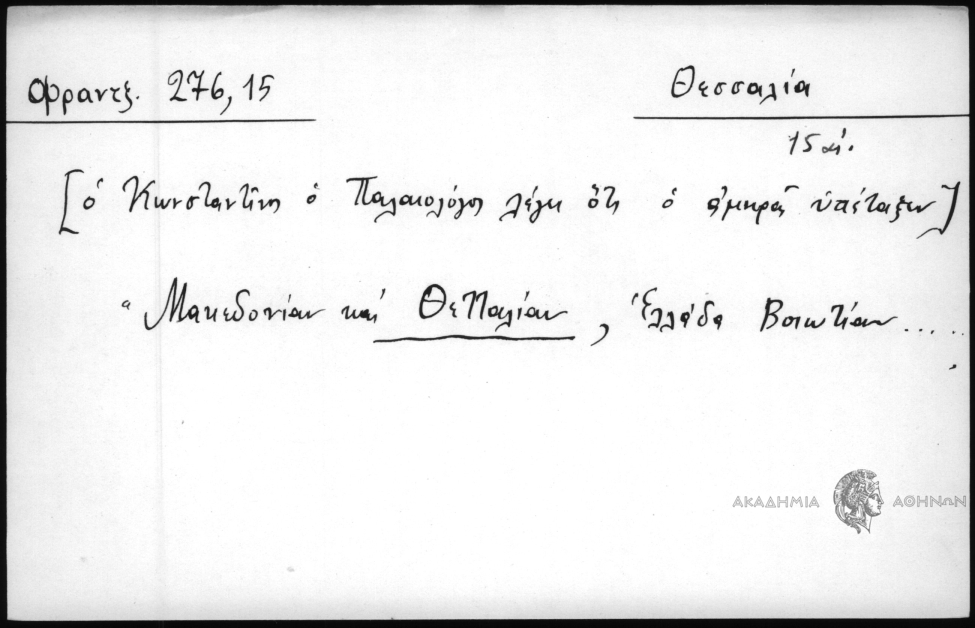 Φραντζ. 276,15
Θεσσαλία
15 αἰ.
[ὁ Κωνσταντῖνος ὁ Παλαιολόγος λέγει ὅτι ὁ ἀμηρᾶς ὑπέταξεν]
“Μακεδονίαν καί Θετταλίαν, Ἑλλάδα Βοιωτίαν.....
ΑΚΑΔΗΜΙΑ ΑΘΗΝΩΝ